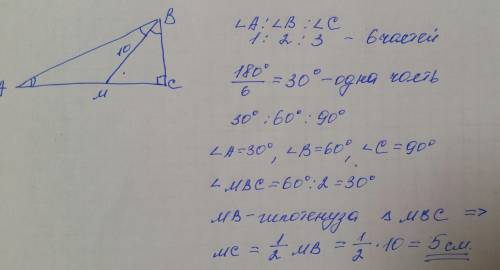 B
10
A
M
C
∠A:∠B:∠C
1 : 2 : 3 – 6 частей
180°/6 = 30° – одна часть
30° : 60° : 90°
∠A=30°, ∠B=60°, ∠C=90°
∠MBC=60°:2=30°
MB-гипотенуза Δ MBC =>
MC = 1/2 MB = 1/2 · 10 = 5 см.